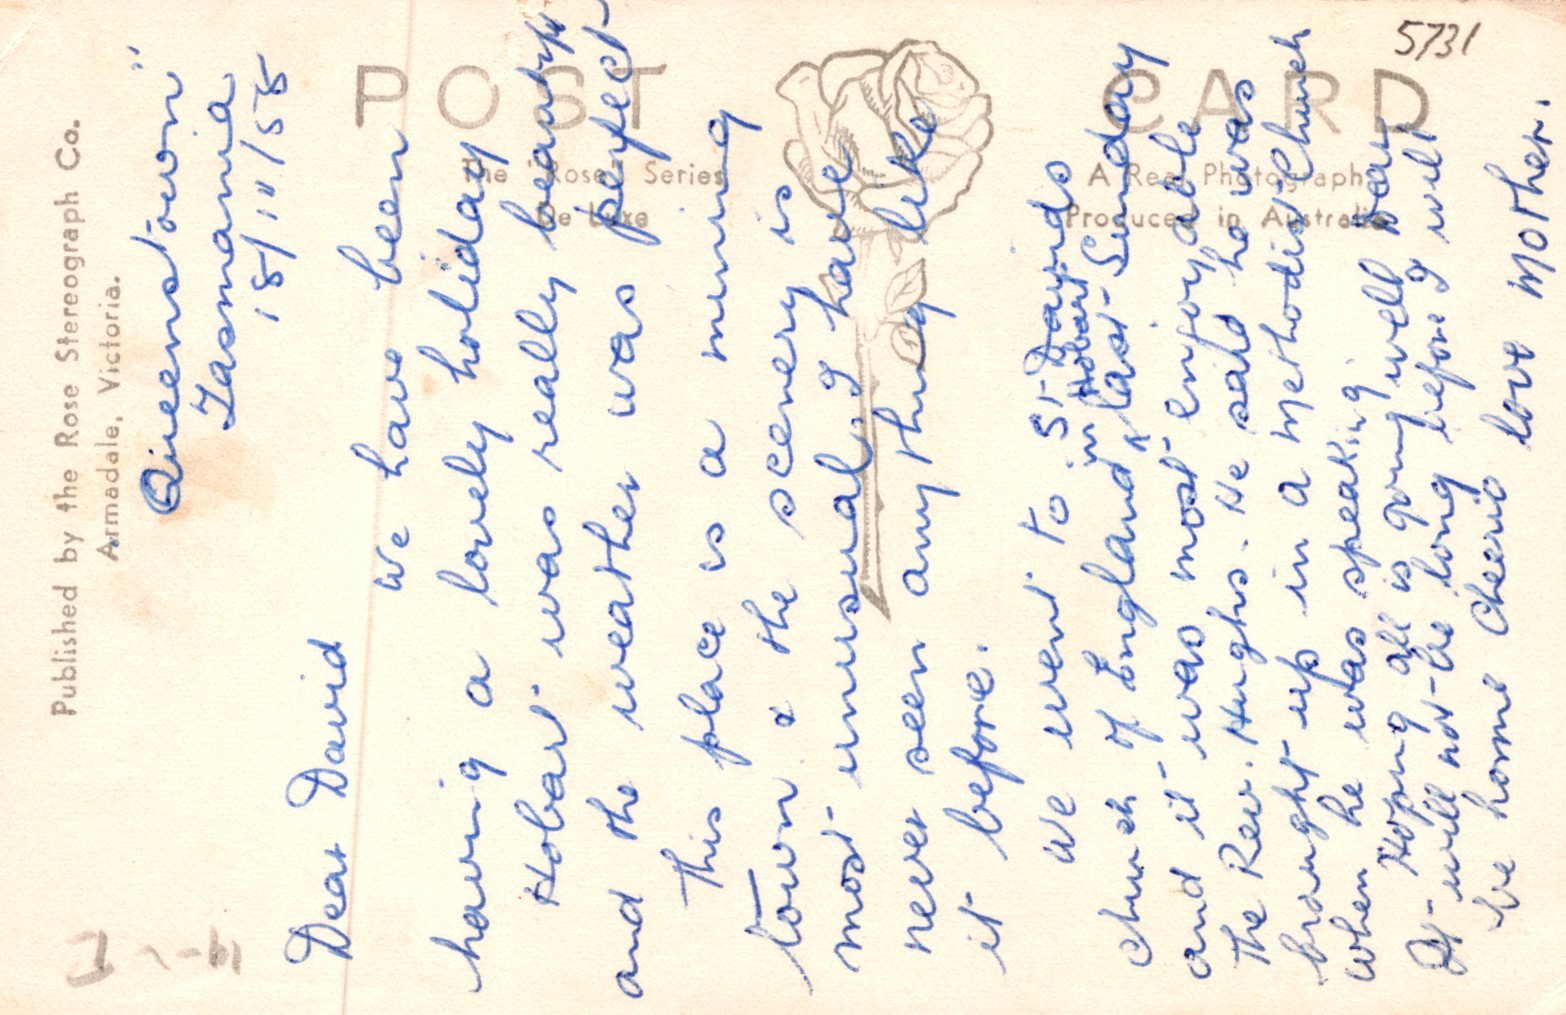 5731
POST CARD
The "Rose" Series
De Luxe
A Real Photograph
Produced in Australia
Published by the Rose Stereograph Co.
Armadale, Victoria.
Queenstown"
Tasmania
18/11/58
Dear David
We have been
having a lovely holiday
Hobart was really beautiful
and the weather was perfect
This place is a mining
town & the scenery is
most unusual, I have
never seen anything like
it before.
We went to St Davids
in Hobart
Church of England last Sunday
and it was most enjoyable
The Rev. Hughs. He said he was
brought up in a Methodist Church
when he was speaking
Hoping all is going well dear
It will not be long before I will
be home Cheerio love Mother.